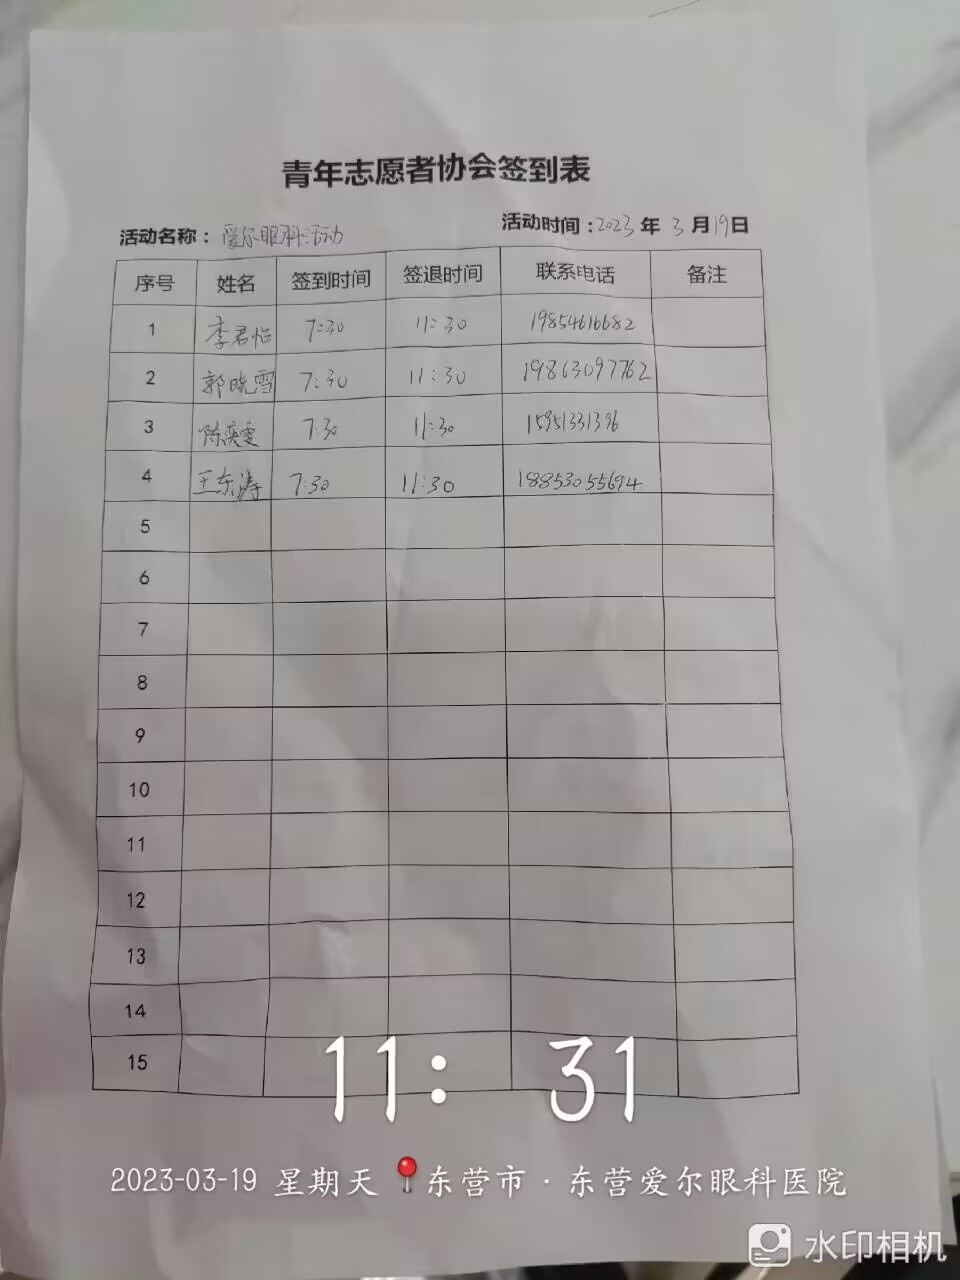 青年志愿者协会签到表
活动名称：爱尔眼科活动 活动时间：2023年3月19日
序号 姓名 签到时间 签退时间 联系电话 备注
1 李君怡 7:30 11:30 19854616682
2 郭晓雪 7:30 11:30 19863097762
3 陈奕雯 7:30 11:30 15951331396
4 王东涛 7:30 11:30 18853055694
5
6
7
8
9
10
11
12
13
14
15
11: 31
2023-03-19 星期天 东营市·东营爱尔眼科医院
水印相机